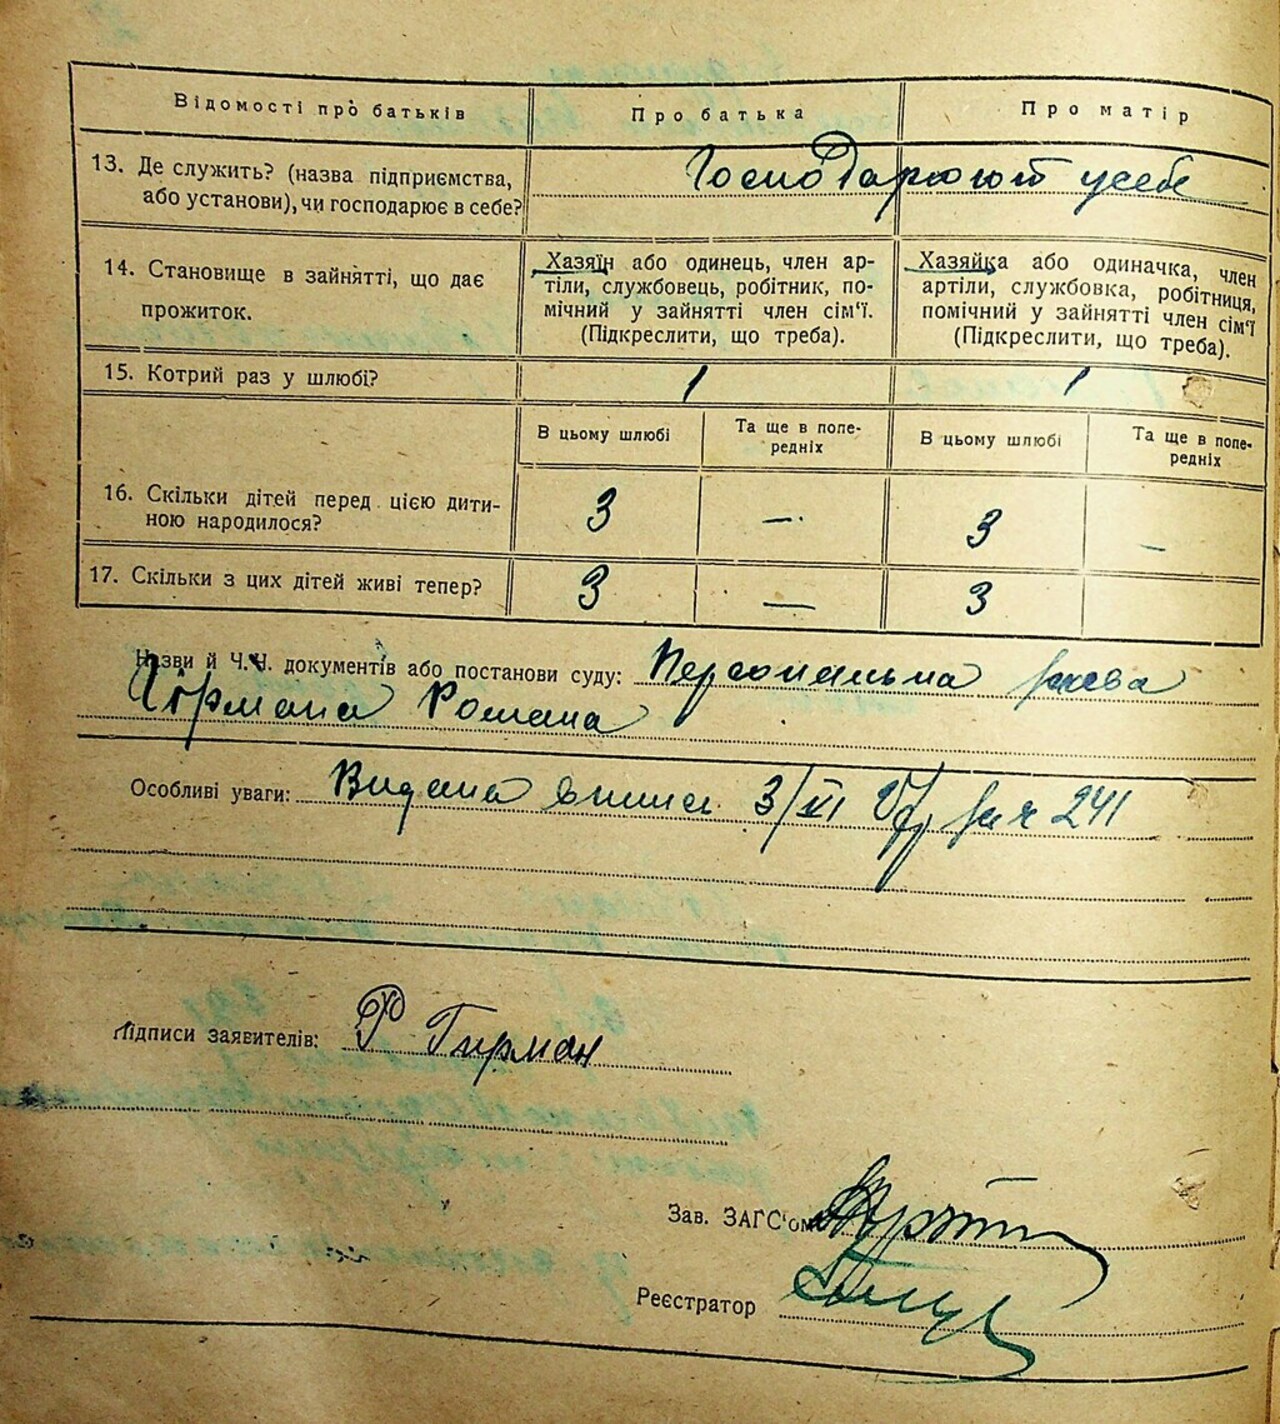 Відомості про батьків Про батька Про матір
13. Де служить? (назва підприємства, або установи), чи господарює в себе?
Господарюют усебе
14. Становище в зайнятті, що дає прожиток.
Хазяїн або одинець, член ар-
тіли, службовець, робітник, по-
мічний у зайнятті член сім'ї.
(Підкреслити, що треба).
Хазяйка або одиначка, член
артіли, службовка, робітниця,
помічний у зайнятті член сім'ї
(Підкреслити, що треба).
15. Котрий раз у шлюбі? 1 1
В цьому шлюбі Та ще в попе-
редніх В цьому шлюбі Та ще в попе-
редніх
16. Скільки дітей перед цією дити-
ною народилося? 3 — 3 —
17. Скільки з цих дітей живі тепер? 3 — 3
Назви й Ч.Ч. документів або постанови суду: Персональна
Гірмана Романа
Особливі уваги: Видана 3/XI 241
Підписи заявителів: Р Гирман
Зав. ЗАГС'ом
Реєстратор